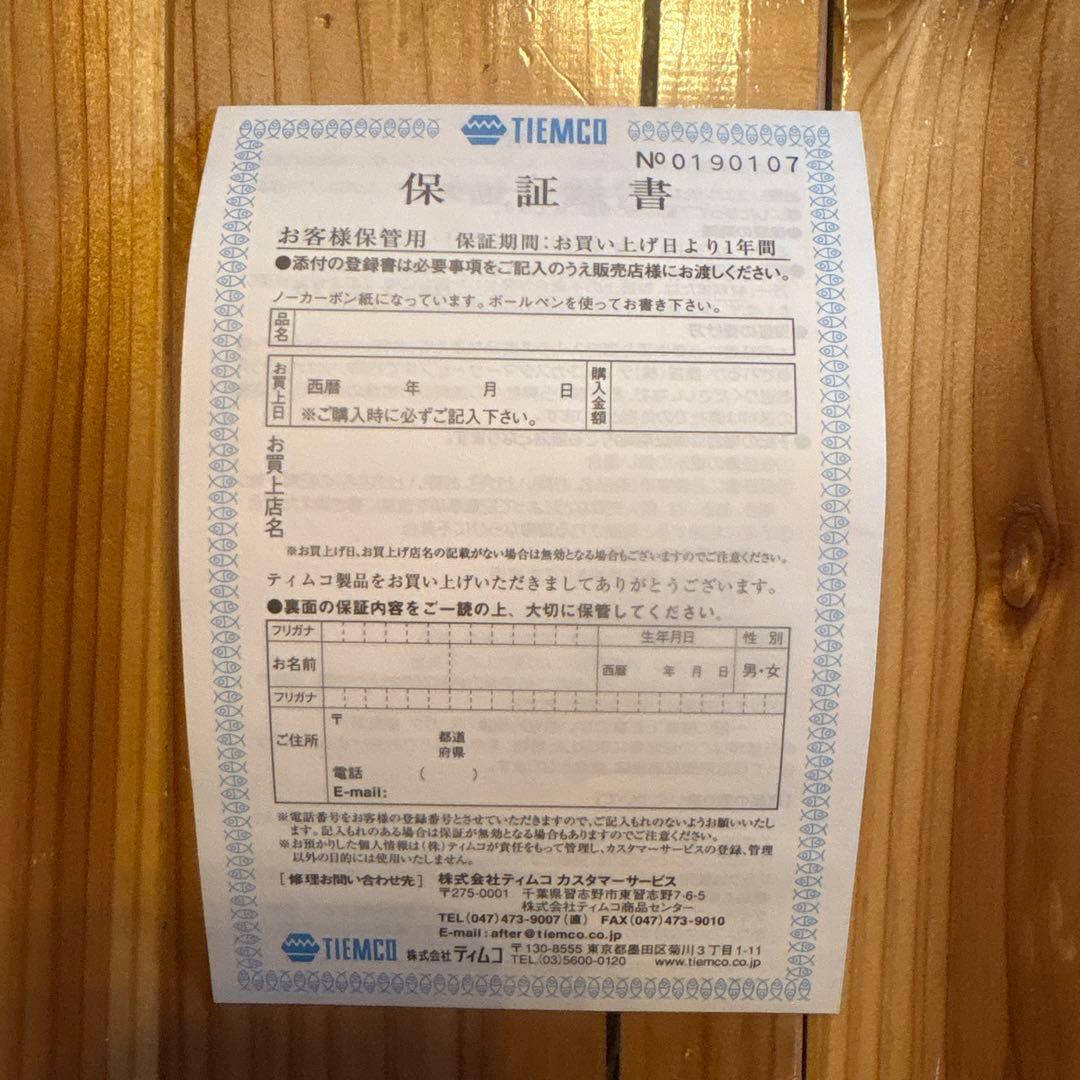 TIEMCO
№0190107
保証書
お客様保管用 保証期間:お買い上げ日より1年間
●添付の登録書は必要事項をご記入のうえ販売店様にお渡しください。
ノーカーボン紙になっています。ボールペンを使ってお書き下さい。
品名
お買上日 西暦 年 月 日 購入金額
※ご購入時に必ずご記入下さい。
お買上店名
※お買上げ日、お買上げ店名の記載がない場合は無効となる場合もございますのでご注意ください。
ティムコ製品をお買い上げいただきましてありがとうございます。
●裏面の保証内容をご一読の上、大切に保管してください。
フリガナ 生年月日 性別
お名前 西暦 年 月 日 男・女
フリガナ
ご住所 〒
都道
府県
電話 ( )
E-mail:
※電話番号をお客様の登録番号とさせていただきますので、ご記入もれのないようお願いいたし
ます。記入もれのある場合は保証が無効となる場合もありますのでご注意ください。
※お預かりした個人情報は(株)ティムコが責任をもって管理し、カスタマーサービスの登録、管理
以外の目的には使用いたしません。
[修理お問い合わせ先] 株式会社ティムコ カスタマーサービス
〒275-0001 千葉県習志野市東習志野7-6-5
株式会社ティムコ商品センター
TEL(047)473-9007(直) FAX(047)473-9010
E-mail:after@tiemco.co.jp
TIEMCO 株式会社ティムコ 〒130-8555 東京都墨田区菊川3丁目1-11
TEL.(03)5600-0120 www.tiemco.co.jp